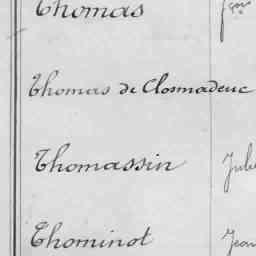 Thomas
Thomas de Closmadeuc
Thomassin Jule
Thominot Jean